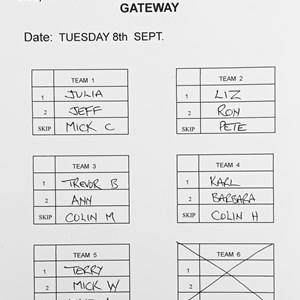 GATEWAY
Date: TUESDAY 8th SEPT.
TEAM 1
1 JULIA
2 JEFF
SKIP MICK C
TEAM 2
1 LIZ
2 RON
SKIP PETE
TEAM 3
1 TREVOR B
2 ANN
SKIP COLIN M
TEAM 4
1 KARL
2 BARBARA
SKIP COLIN H
TEAM 5
1 TERRY
2 MICK W
TEAM 6
1
2